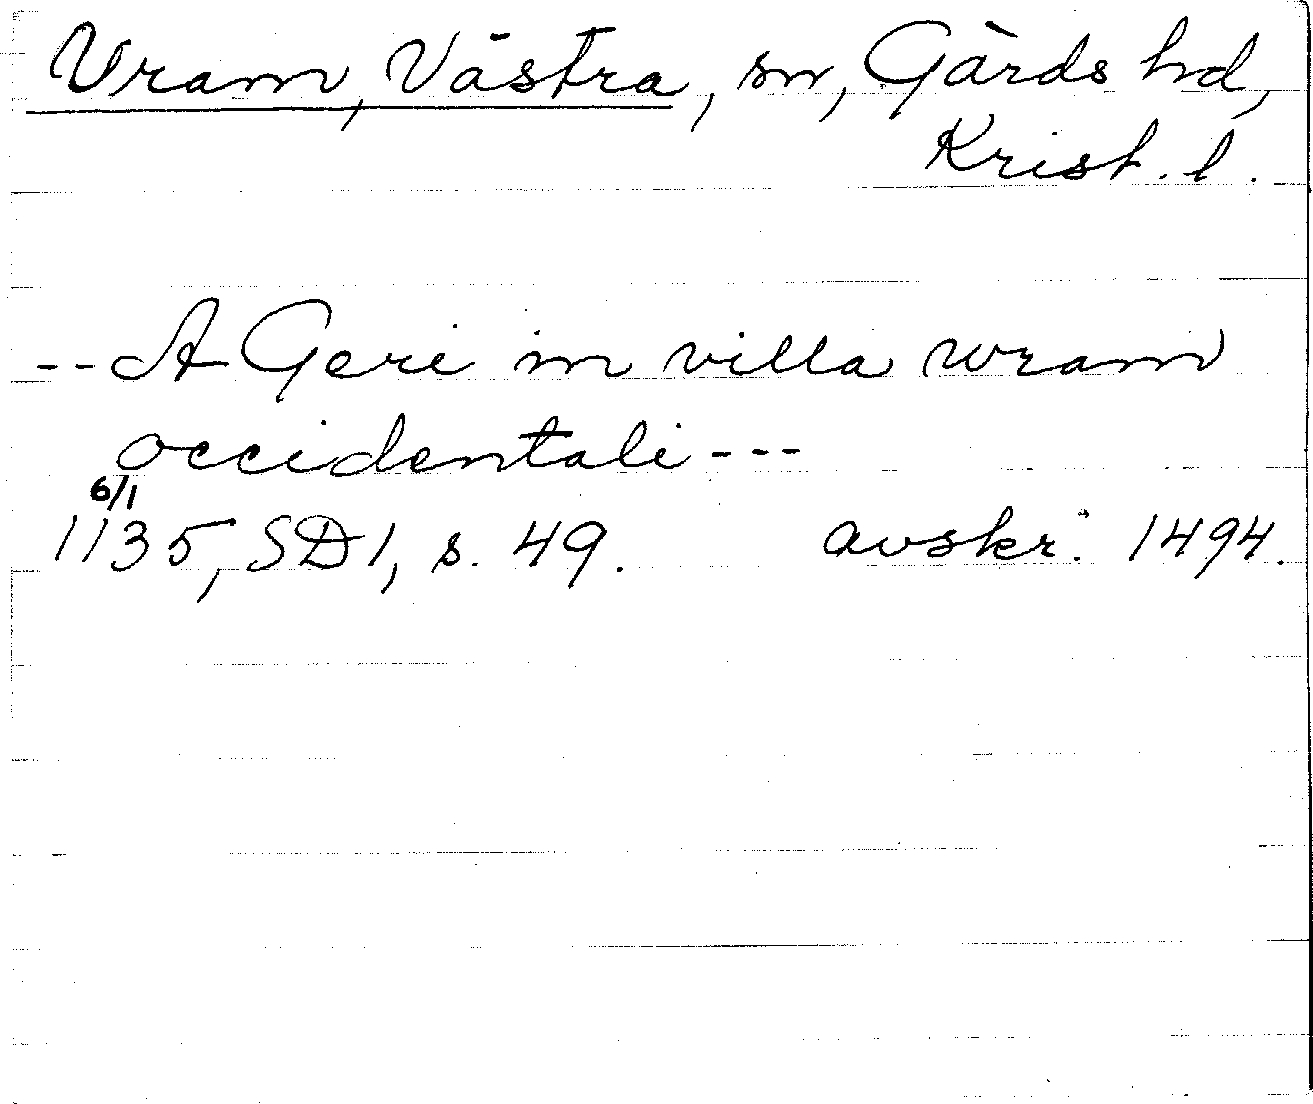 Vram, Västra, sn, Gärds hd,
Krist. l.
-- A Geri in villa wram
occidentali ---
6/1
1135, SD 1, s. 49. avskr. 1494.